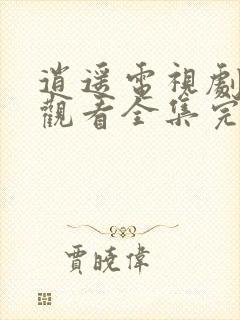 逍遥電視劇
觀看全集完
賈曉偉